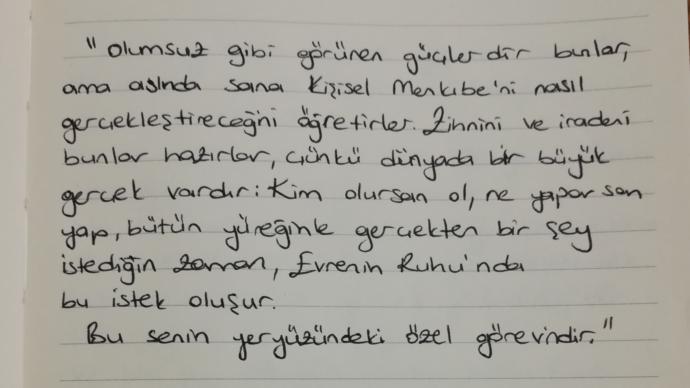 "Olumsuz gibi görünen güçlerdir bunlar,
ama aslında sana Kişisel Menkıbe'ni nasıl
gerçekleştireceğini öğretirler. Zihnini ve iradeni
bunlar hazırlar, çünkü dünyada bir büyük
gerçek vardır: Kim olursan ol, ne yaparsan
yap, bütün yüreğinle gerçekten bir şey
istediğin zaman, Evrenin Ruhu'nda
bu istek oluşur.
Bu senin yeryüzündeki özel görevindir."